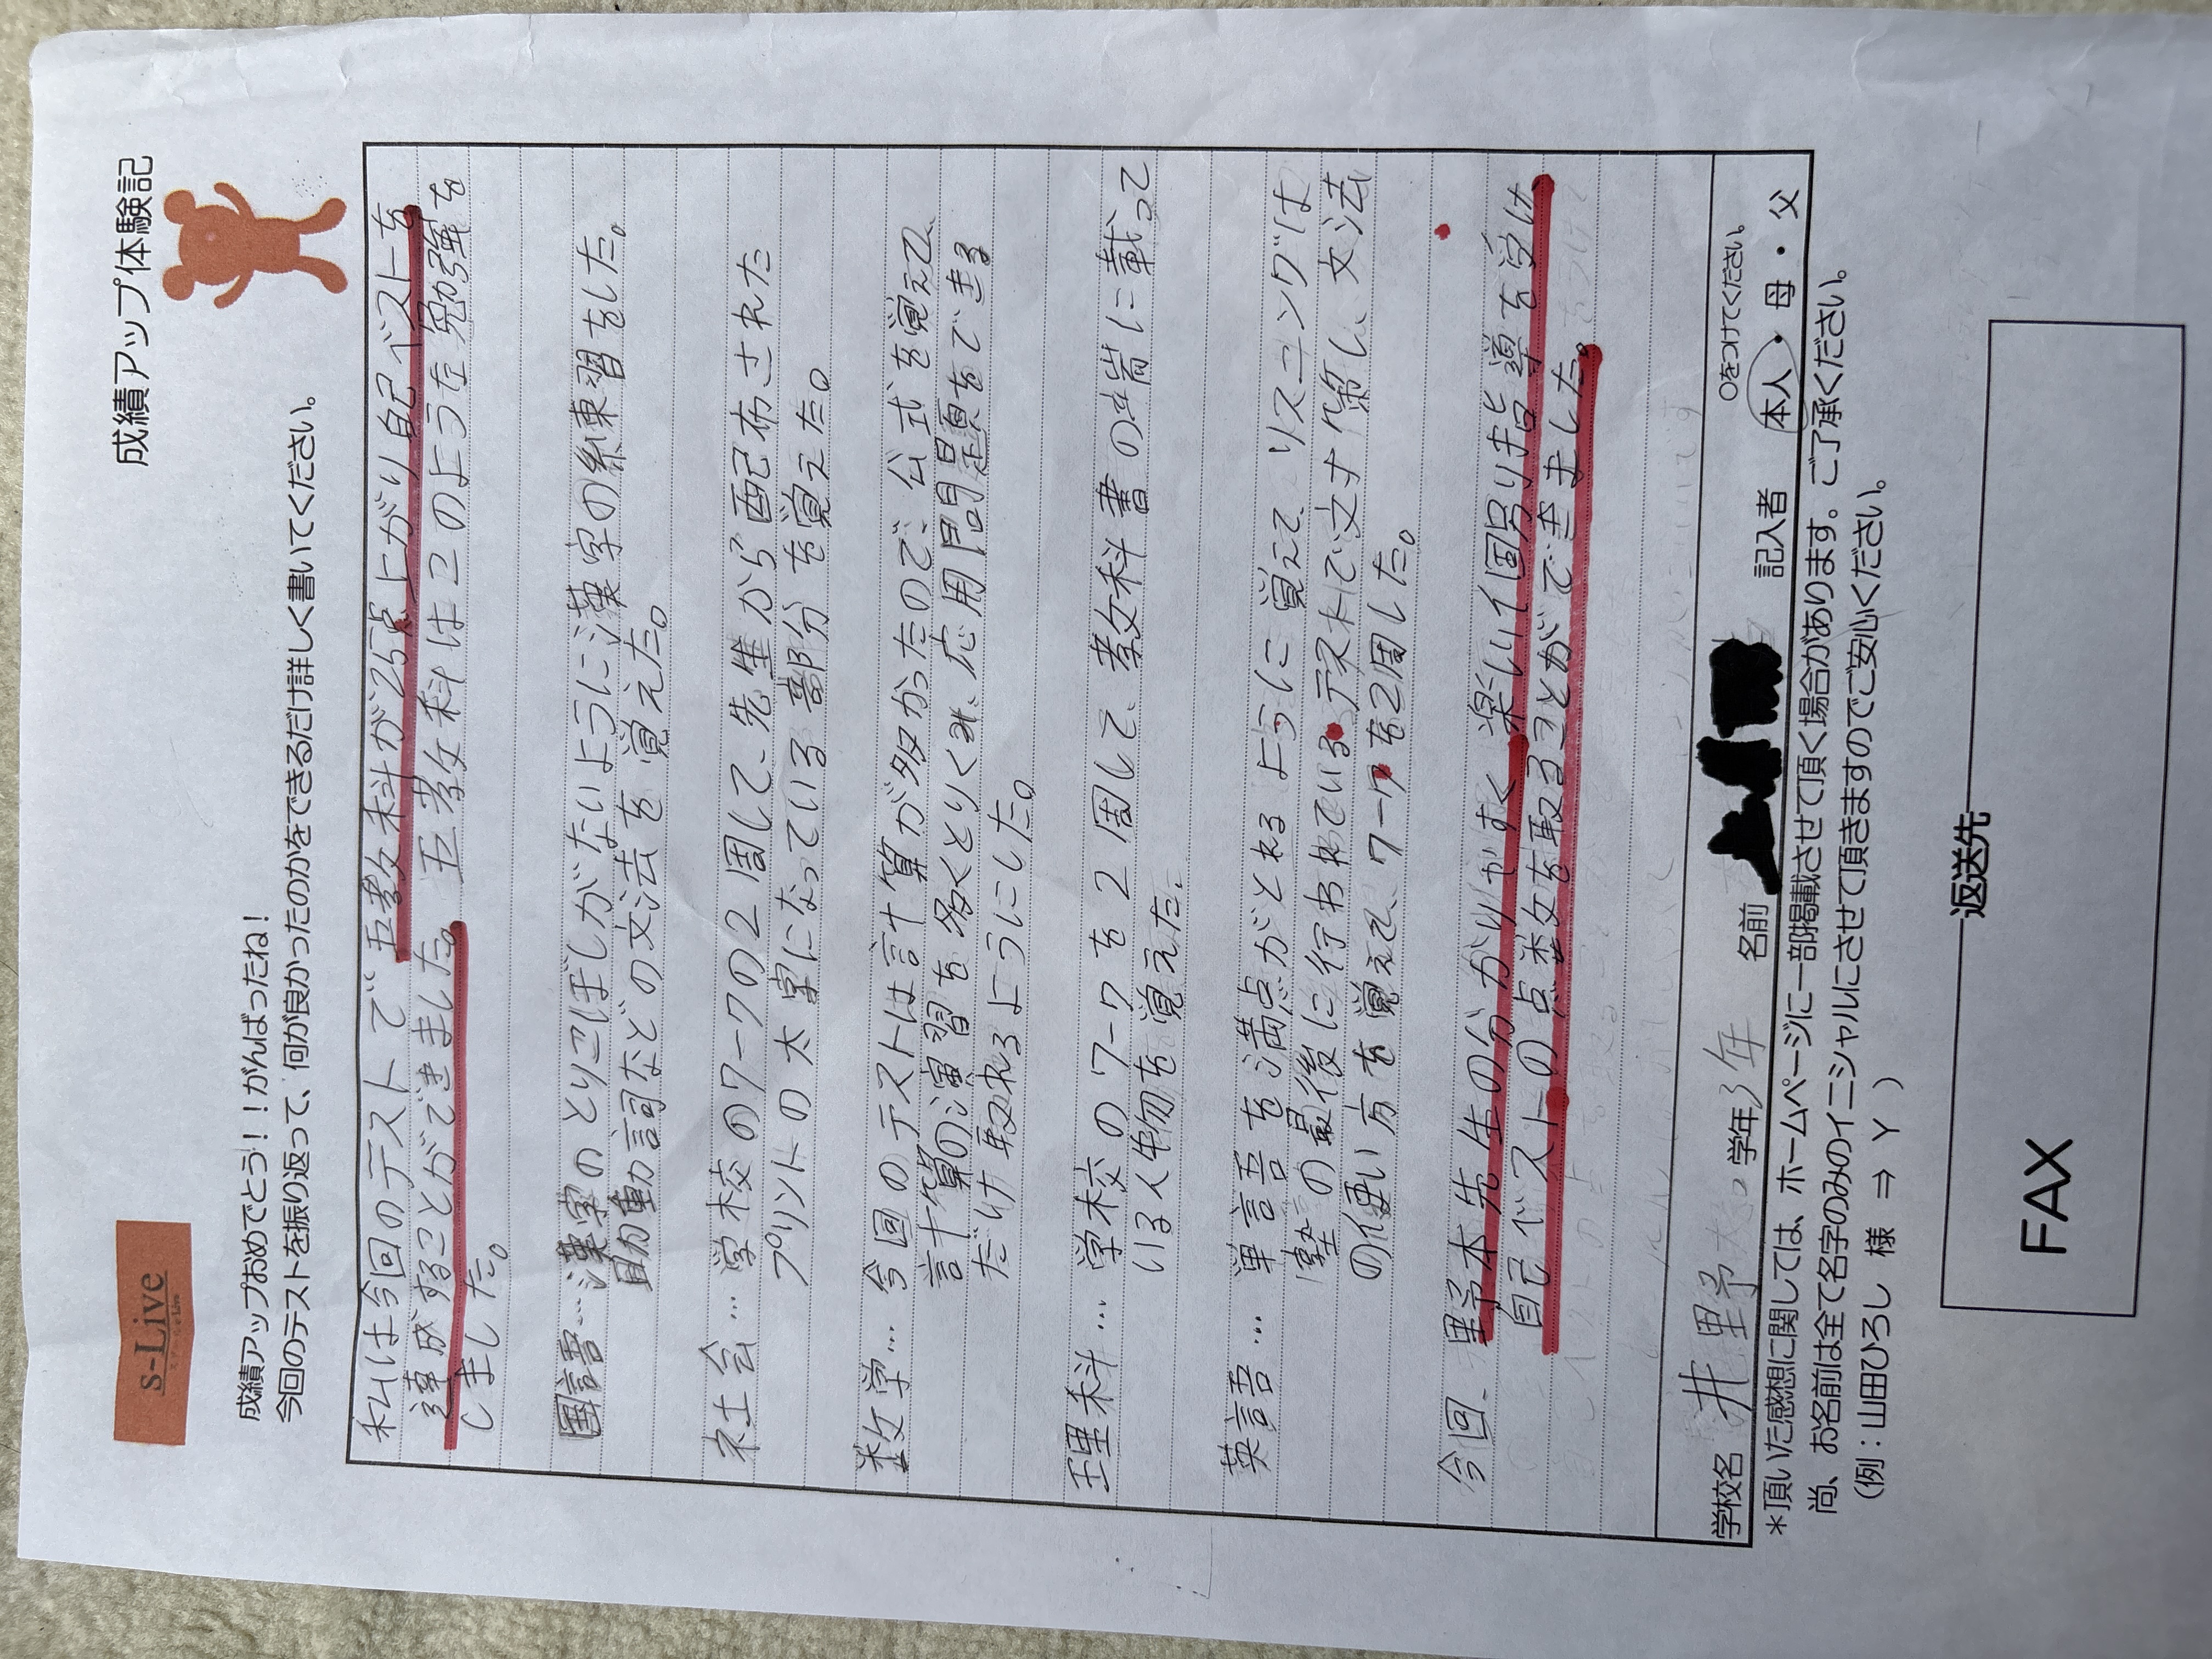 s-Live
成績アップ体験記
成績アップおめでとう！！がんばったね！
今回のテストを振り返って、何が良かったのかをできるだけ詳しく書いてください。
私は今回のテストで五教科が25点上がり自己ベストを
達成することができました。五教科はこのような勉強を
しました。
国語…漢字のとりこぼしがないように漢字の練習をした。
助動詞などの文法を覚えた。
社会…学校のワークの2周して、先生から配布された
プリントの太字になっている部分を覚えた。
数学…今回のテストは計算が多かったので、公式を覚えて、
計算の演習を多くとりくみ、応用問題をできる
だけ取れるようにした。
理科…学校のワークを2周して、教科書の端に載って
いる人物を覚えた。
英語…単語を満点がとれるように覚えて、リスニングは
塾の最後に行われているテストで対策し、文法
の使い方を覚えて、ワークを2周した。
今回、野本先生の分かりやすく楽しい個別指導を受け
自己ベストの点数を取ることができました。
学校名 井野 学年3年 名前 記入者 ○をつけてください。 本人・母・父
＊頂いた感想に関しては、ホームページに一部掲載させて頂く場合があります。ご了承ください。
尚、お名前は全て名字のみのイニシャルにさせて頂きますのでご安心ください。
（例：山田ひろし 様 ⇒ Y ）
返送先
FAX